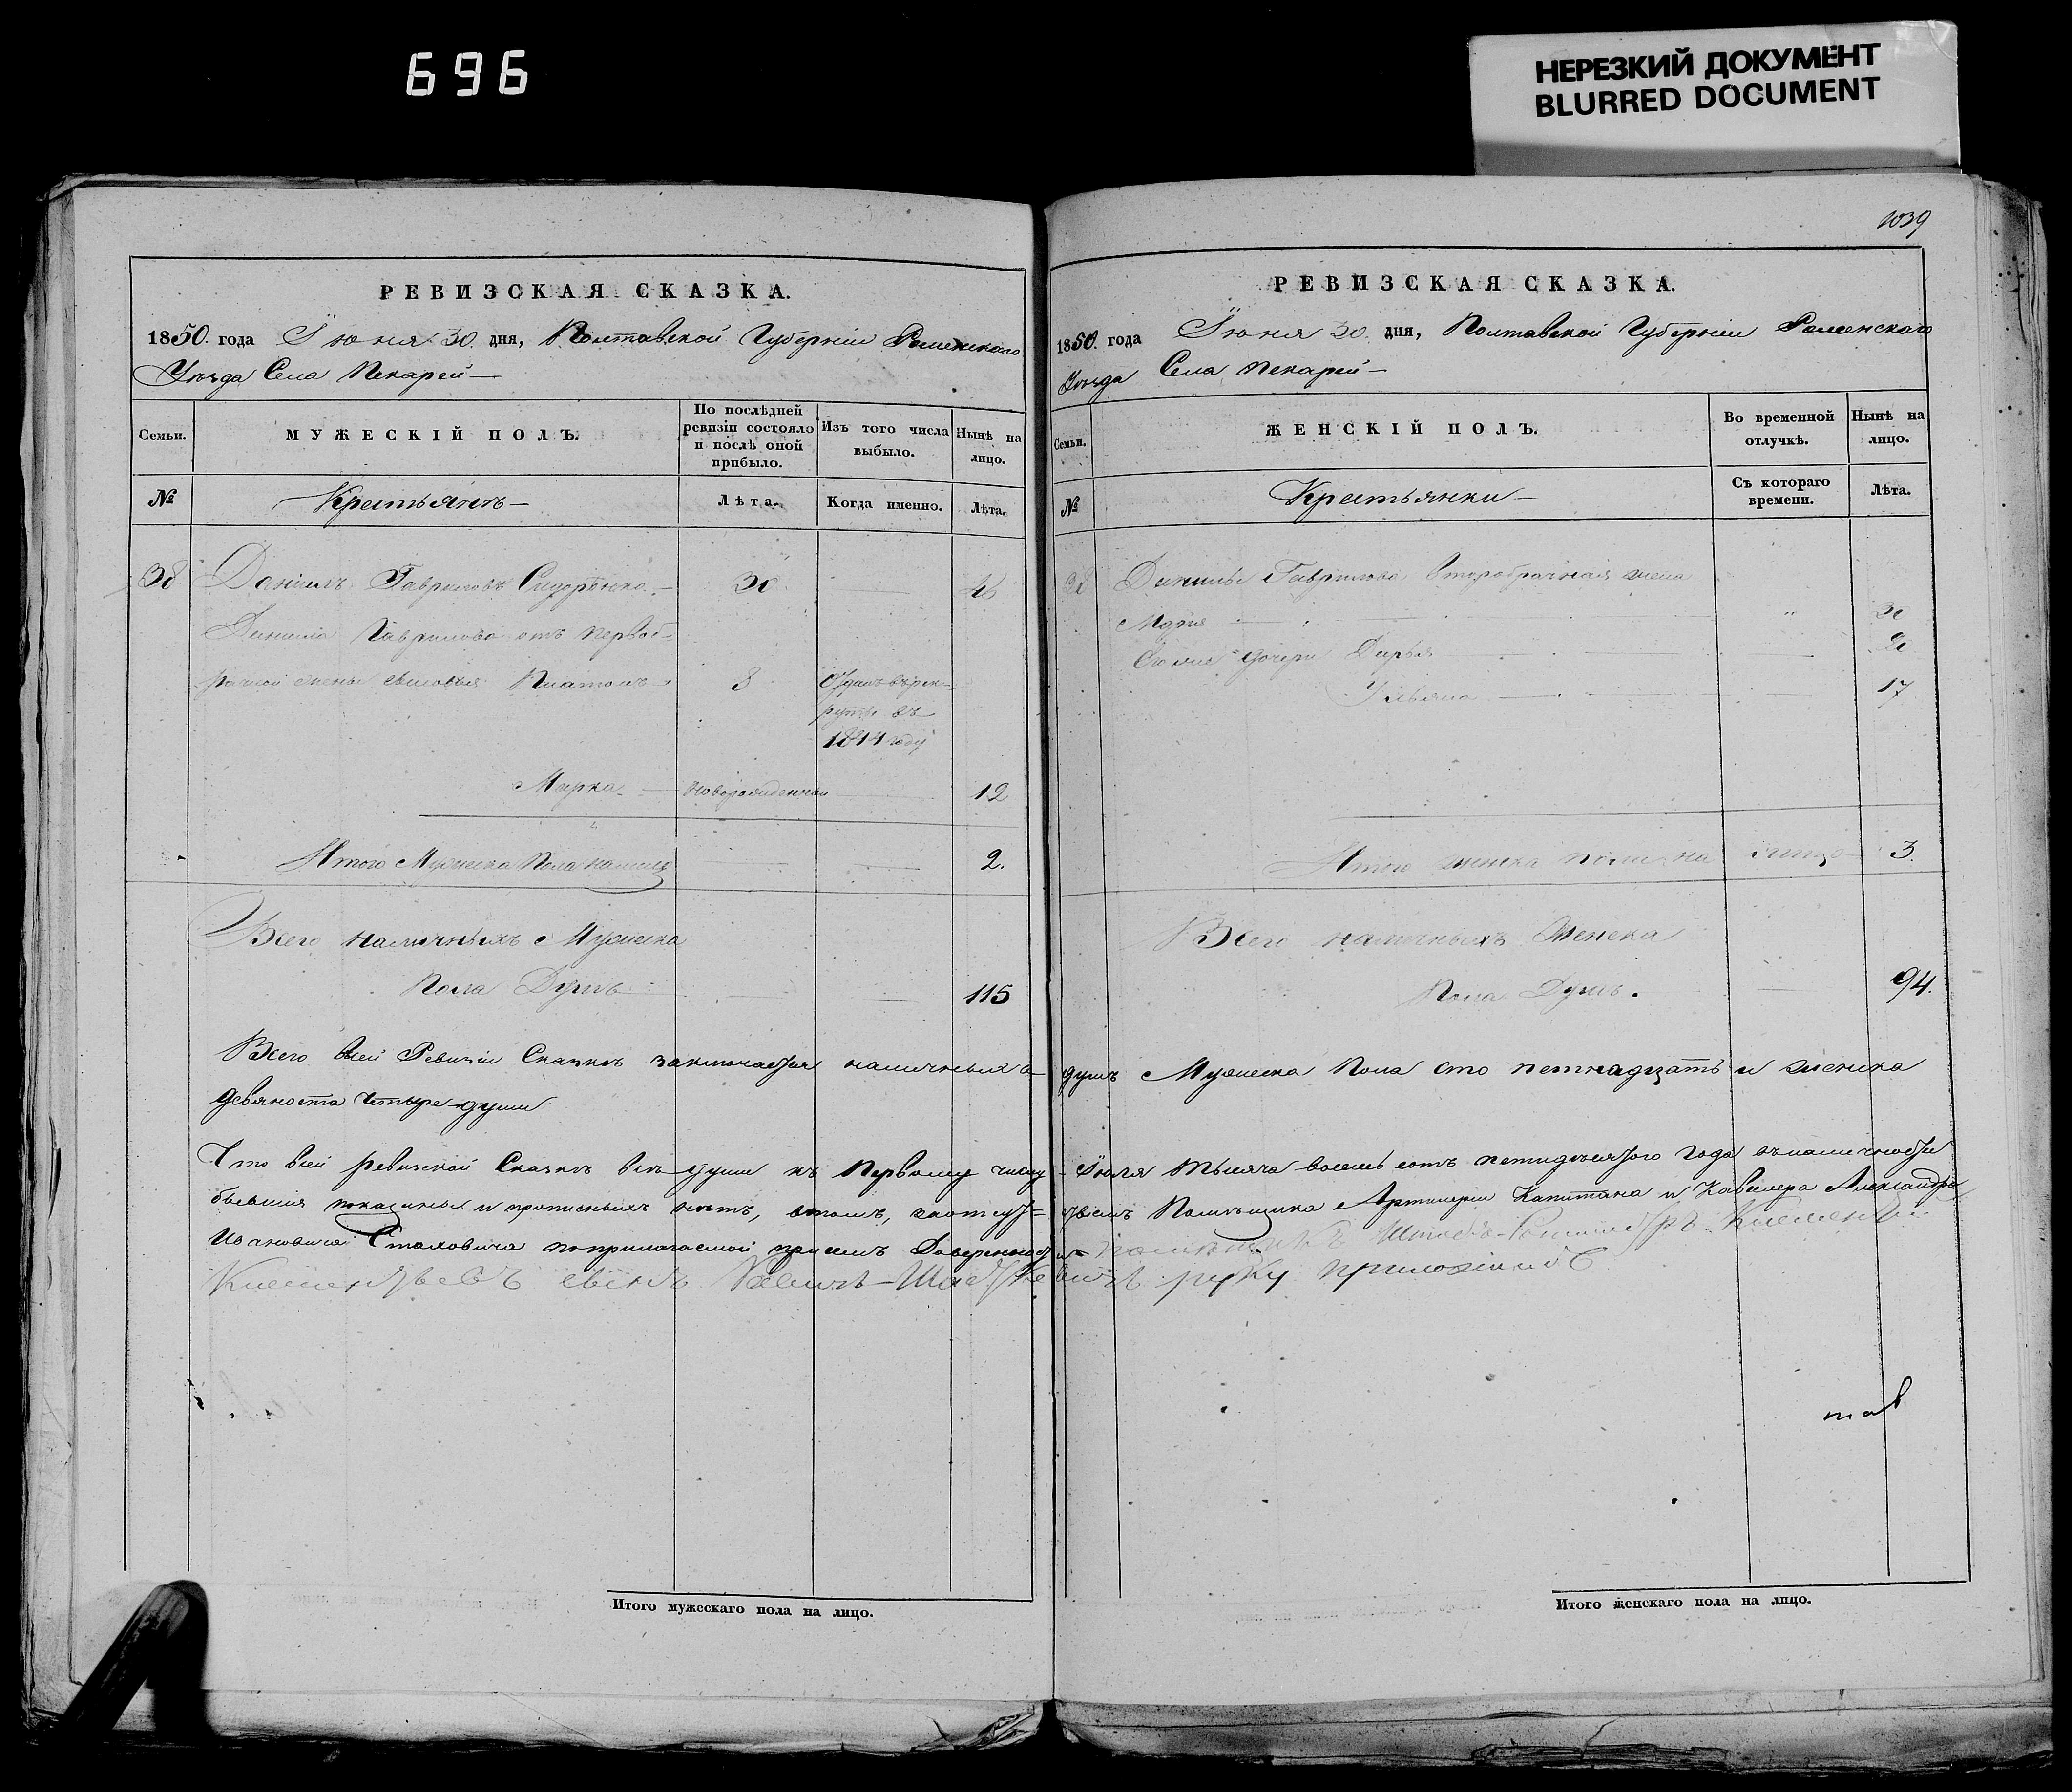 696
НЕРЕЗКИЙ ДОКУМЕНТ
BLURRED DOCUMENT
РЕВИЗСКАЯ СКАЗКА.
1850. года Июня 30. дня, Полтавской Губернiи Роменскаго
Уѣзда Села Пекарей —
Семьи.
МУЖЕСКІЙ ПОЛЪ.
По послѣдней
ревизіи состояло
и послѣ оной
прибыло.
Изъ того числа
выбыло.
Нынѣ на
лицо.
№
Крестьянъ —
Лѣта.
Когда именно.
Лѣта.
38 Данiилъ Гавриловъ Сидоренко. — 30
Данила Гаврилова отъ первоб-
рачной жены сыновья Платонъ 8 Отданъ въ рек-
руты въ
году
Марка — новорожденный 12
Итого Мужеска Пола налицо 2.
Всего наличныхъ Мужеска
Пола Душъ 115
1039
РЕВИЗСКАЯ СКАЗКА.
1850. года Июня 30. дня, Полтавской Губернiи Роменскаго
Уѣзда Села Пекарей —
Семьи.
ЖЕНСКІЙ ПОЛЪ.
Во временной
отлучкѣ.
Нынѣ на
лицо.
№
Крестьянки —
Съ котораго
времени.
Лѣта.
38 Данилы Гаврилова второбрачная жена
Марья "
дочери Дарья
Ульяна 17
Итого женска пола на лицо 3.
Всего наличныхъ Женска
Пола Душъ. 94.
Всего въ сей Ревизіи Сказкѣ заключается наличныхъ душъ Мужеска Пола сто петнадцать и женска
девяноста четыре души
Что въ сей ревизской Сказкѣ всѣ души къ Первому числу Iюля тысяча восемь сотъ петидесятого года въ наличности
бывшiя показаны и прописныхъ нѣтъ, въ томъ, за отсутствiемъ Помѣщика Артилерiи Капитана и Кавалера Александра
Ивановича Стаховича по прилагаемой при семъ Доверенности помѣщикъ Штабъ-Ротмистръ
сынъ руку приложилъ
Итого мужескаго пола на лицо.
Итого женскаго пола на лицо.